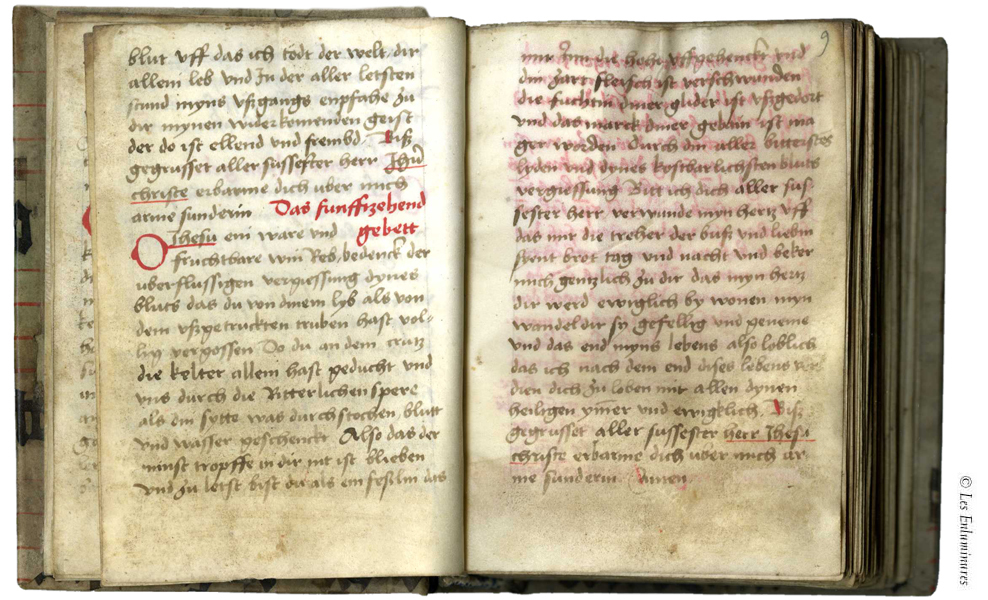 blut vff das ich tödt der welt dir
allein leb vnd In der aller letsten
stund myns vßgangs enpfahe zu
dir mynen widerkomenden geist
der do ist ellend vnd frembd. Biß
gegrusset aller sussester herr Ihu
christe erbarme dich uber mich
arme sunderin Das funffzehend
gebett
O Ihesu ein ware vnd
fruchtbare win Reb, bedenck der
uberflussigen vergiessung dynes
bluts das du von dinem lyb als von
dem vßgetruckten truben hast vol-
lig vergossen Do du an dem crutz
die kelter allein hast geducht vnd
vns durch die Ritterlichen spere
als din sytte was durchstochen, blutt
vnd wasser geschenckt Also das der
minst tropffe in dir nit ist blieben
vnd zu letst bist du als ein das
9
die hoch vffgehenckt vnd
din zart fleisch ist verschwunden
die fuchtin diner glider ist vßgedort
vnd das marck diner gebein ist ma
ger worden Durch din aller bitterstes
lyden vnd dynes kostbarlichsten bluts
vergiessung Bitt ich dich aller sus
sester herr verwunde myn hertz vff
das mir die treher der buß vnd liebin
syent brot tag vnd nacht vnd beker
mich gentzlich zu dir das myn hertz
dir werd ewiglich by wonen myn
wandel dir sy gefellig vnd geneme
vnd das end myns lebens also loblich
das ich nach dem end dises lebens ver
dien dich zu loben mit allen dynen
heiligen ymer vnd ewigklich. Biß
gegrusset aller sussester herr Ihesu
christe erbarme dich uber mich ar
me sunderin Amen
© Les Enluminures